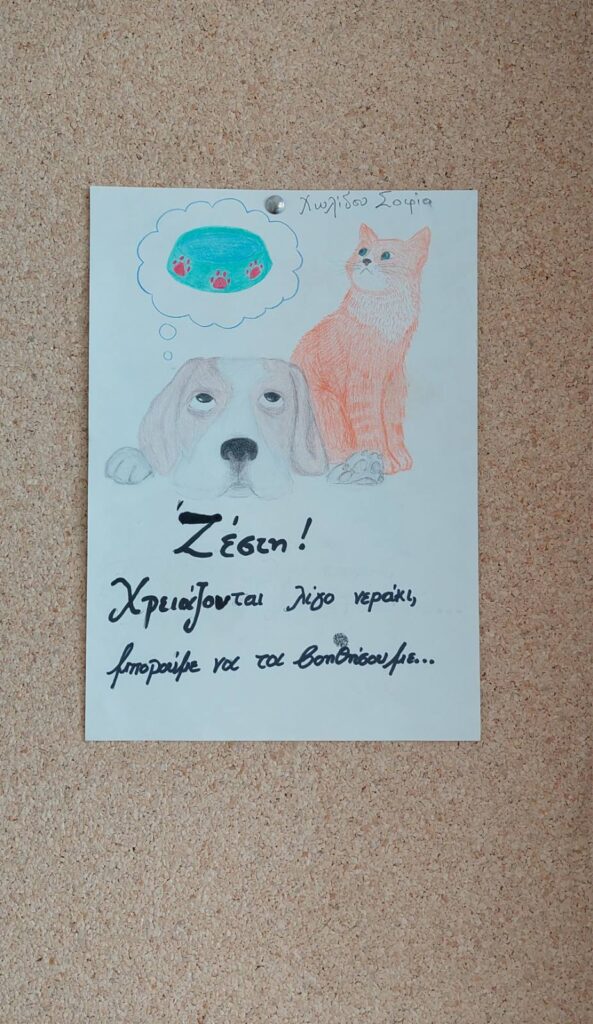 Χωλίδου Σοφία
Ζέστη!
Χρειάζονται λίγο νεράκι,
μπορούμε να τα βοηθήσουμε...